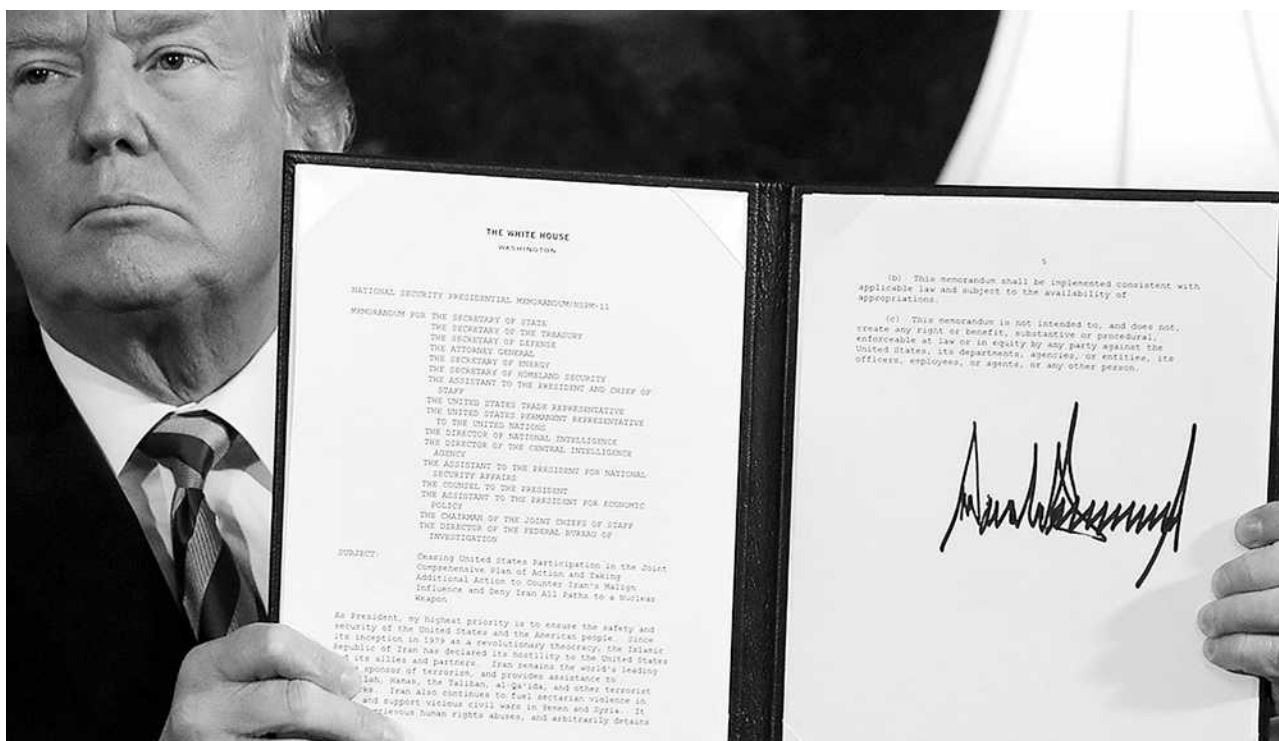 THE WHITE HOUSE
WASHINGTON
NATIONAL SECURITY PRESIDENTIAL MEMORANDUM/NSPM-11
MEMORANDUM FOR THE SECRETARY OF STATE
THE SECRETARY OF THE TREASURY
THE SECRETARY OF DEFENSE
THE ATTORNEY GENERAL
THE SECRETARY OF ENERGY
THE SECRETARY OF HOMELAND SECURITY
THE ASSISTANT TO THE PRESIDENT AND CHIEF OF
STAFF
THE UNITED STATES TRADE REPRESENTATIVE
THE UNITED STATES PERMANENT REPRESENTATIVE
TO THE UNITED NATIONS
THE DIRECTOR OF NATIONAL INTELLIGENCE
THE DIRECTOR OF THE CENTRAL INTELLIGENCE
AGENCY
THE ASSISTANT TO THE PRESIDENT FOR NATIONAL
SECURITY AFFAIRS
THE COUNSEL TO THE PRESIDENT
THE ASSISTANT TO THE PRESIDENT FOR ECONOMIC
POLICY
THE CHAIRMAN OF THE JOINT CHIEFS OF STAFF
THE DIRECTOR OF THE FEDERAL BUREAU OF
INVESTIGATION
SUBJECT: Ceasing United States Participation in the Joint
Comprehensive Plan of Action and Taking
Additional Action to Counter Iran's Malign
Influence and Deny Iran All Paths to a Nuclear
Weapon
As President, my highest priority is to ensure the safety and
security of the United States and the American people. Since
its inception in 1979 as a revolutionary theocracy, the Islamic
Republic of Iran has declared its hostility to the United States
its allies and partners. Iran remains the world's leading
sponsor of terrorism, and provides assistance to
Hamas, the Taliban, al-Qa'ida, and other terrorist
Iran also continues to fuel sectarian violence in
and support vicious civil wars in Yemen and Syria. It
human rights abuses, and arbitrarily detains
5
(b) This memorandum shall be implemented consistent with
applicable law and subject to the availability of
appropriations.
(c) This memorandum is not intended to, and does not,
create any right or benefit, substantive or procedural,
enforceable at law or in equity by any party against the
United States, its departments, agencies, or entities, its
officers, employees, or agents, or any other person.